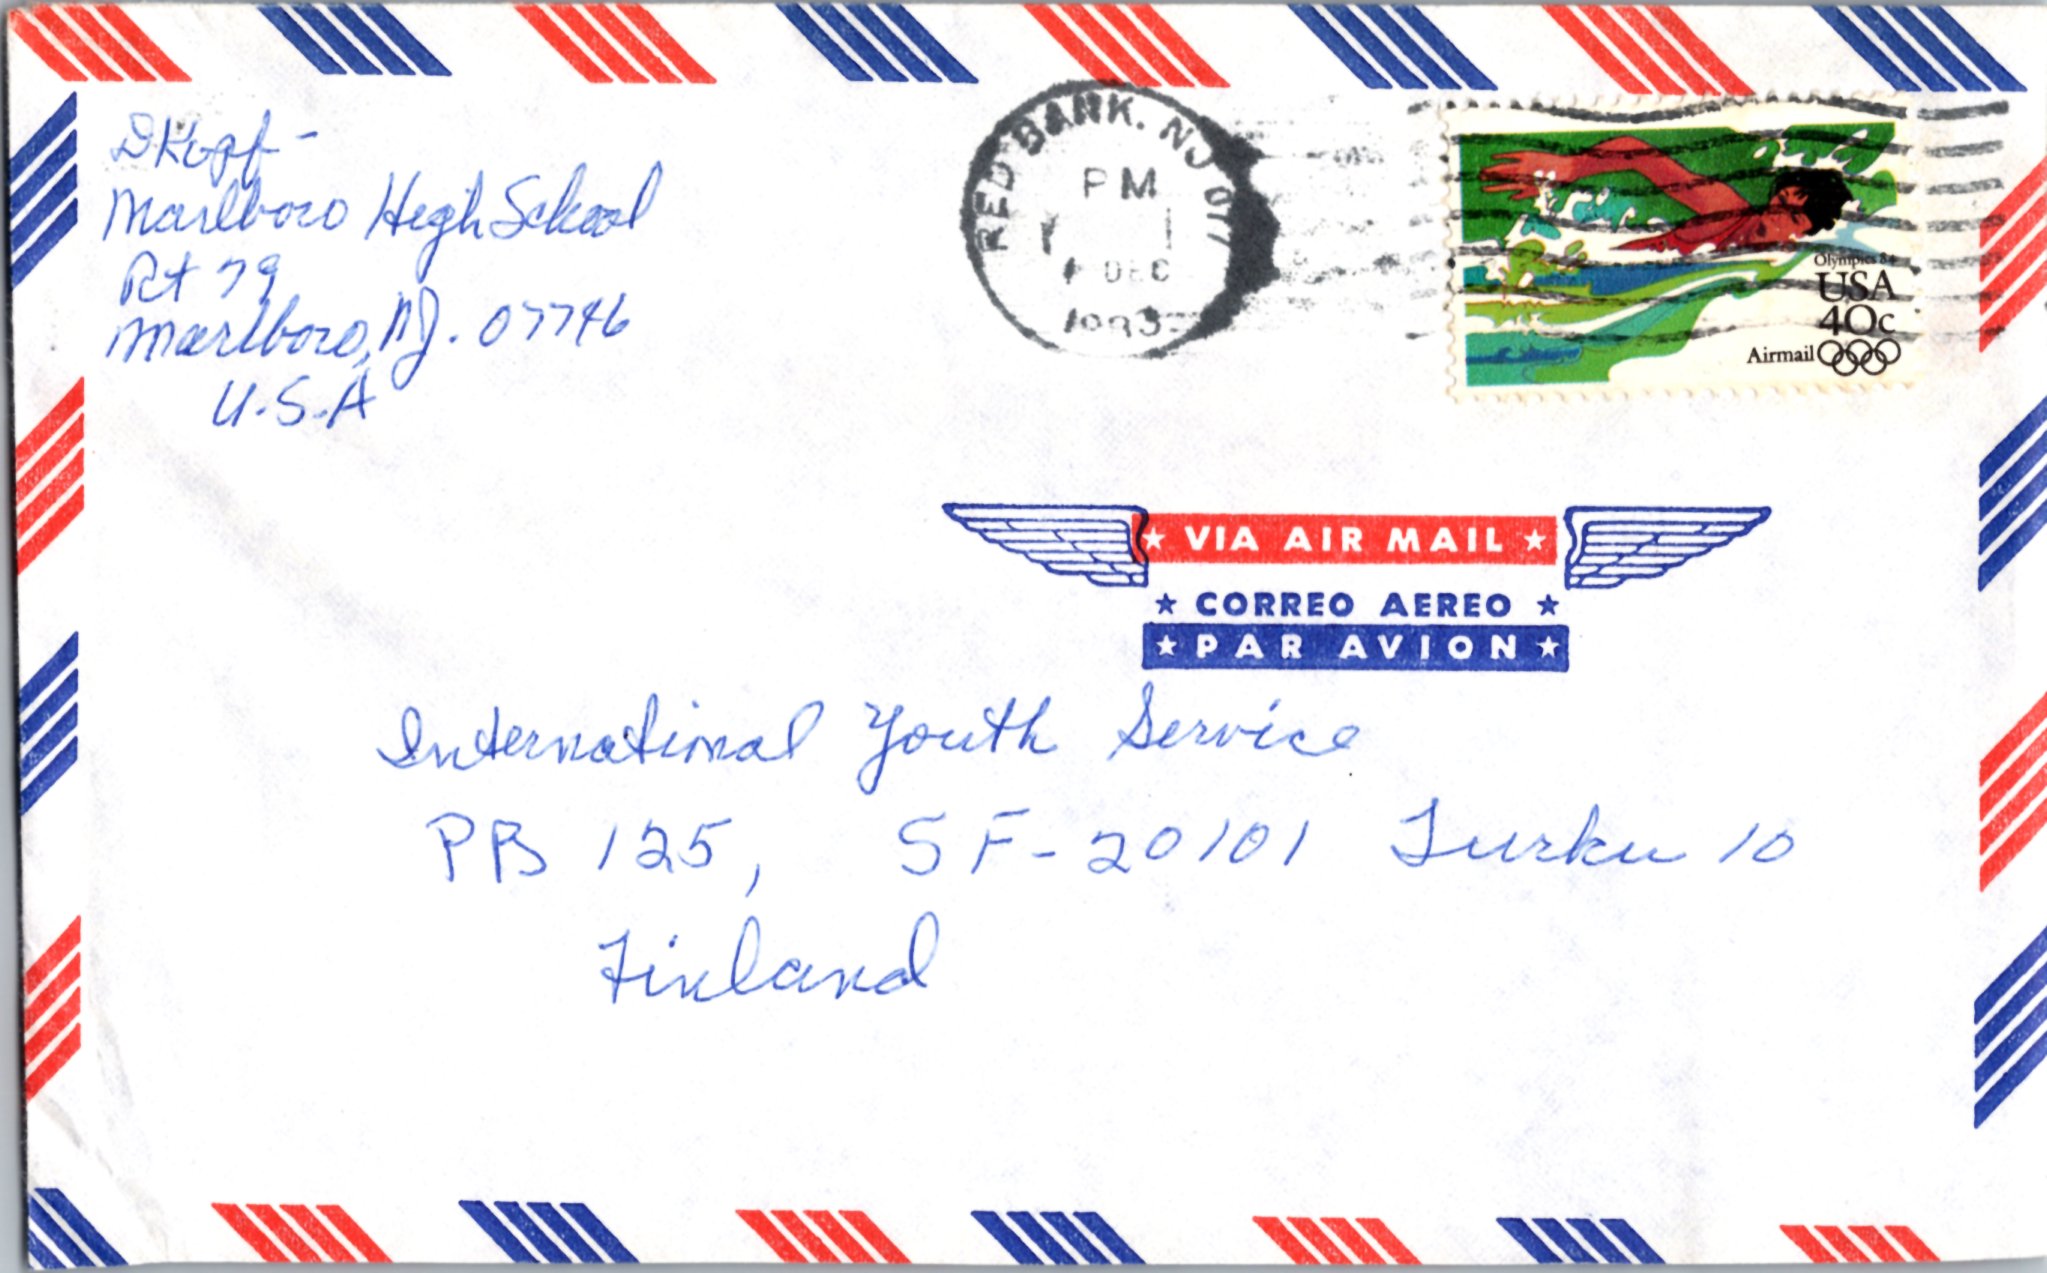 D Kopf -
Marlboro High School
Rt 79
Marlboro, NJ. 07746
U.S.A
RED BANK. NJ 077
PM
DEC
1983
Olympics 84
USA
40c
Airmail
VIA AIR MAIL
CORREO AEREO
PAR AVION
International Youth Service
PB 125, SF-20101 Turku 10
Finland